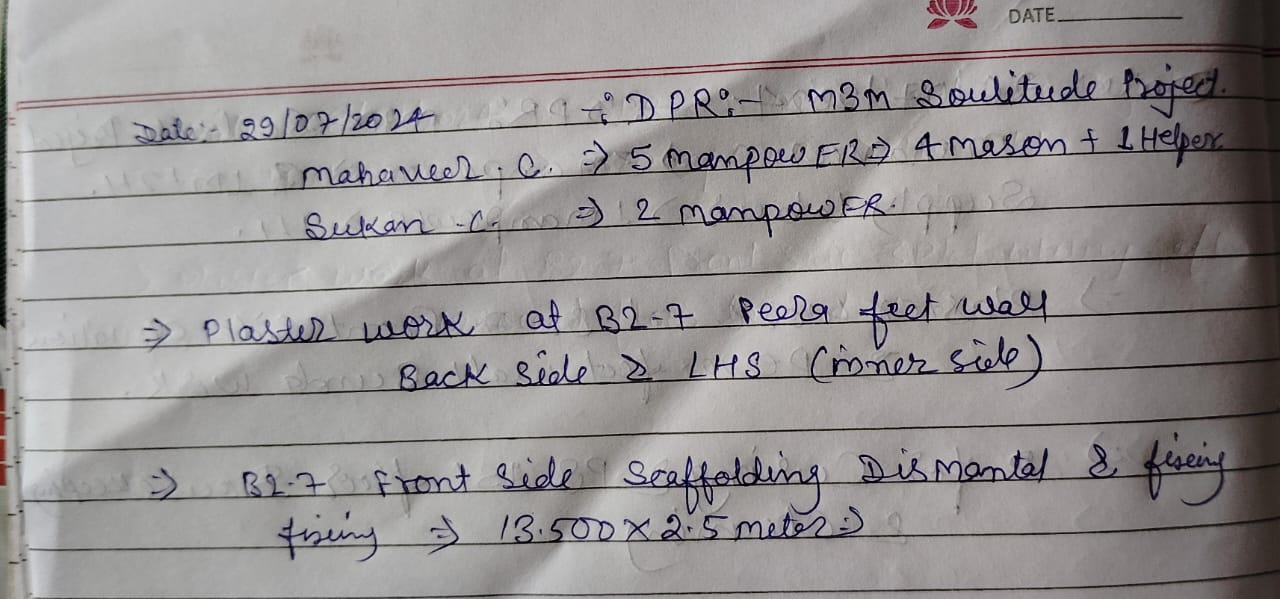 DATE
Date:- 29/07/2024 -:DPR:- M3M Soulitude Project.
Mahaveer. C. => 5 manpowER => 4 mason + 1 Helper
Sukan .C. => 2 manpowER.
=> Plaster work at B2-7 Peera feet wall
Back Side & LHS (inner side)
=> B2-7 Front Side Scaffolding Dismantal & fixing
fixing => 13.500 x 2.5 meter =>